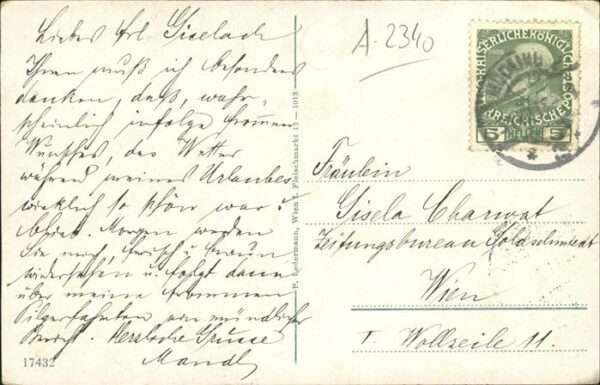 Liebes Frl. Giselach
Ihnen muß ich besonders
danken, daß, wahr-
scheinlich infolge frommen
Wunsches, das Wetter
während meines Urlaubes
wirklich so schön war u
Morgen werden
Sie mich, frisch u braun
wiedersehen u. folgt dann
über meine frommen
Pilgerfahrten ein mündlicher
Bericht. Herzliche Grüsse
Mandl
17432
P. Ledermann, Wien I. Fleischmarkt 12 — 1913
A. 2340
K.K. KAISERLICHE KÖNIGLICHE
ÖSTERREICHISCHE POST
5 HELLER 5
Fräulein
Gisela Charwat
Zeitungsbureau Goldschmiedt
Wien
I. Wollzeile 11.